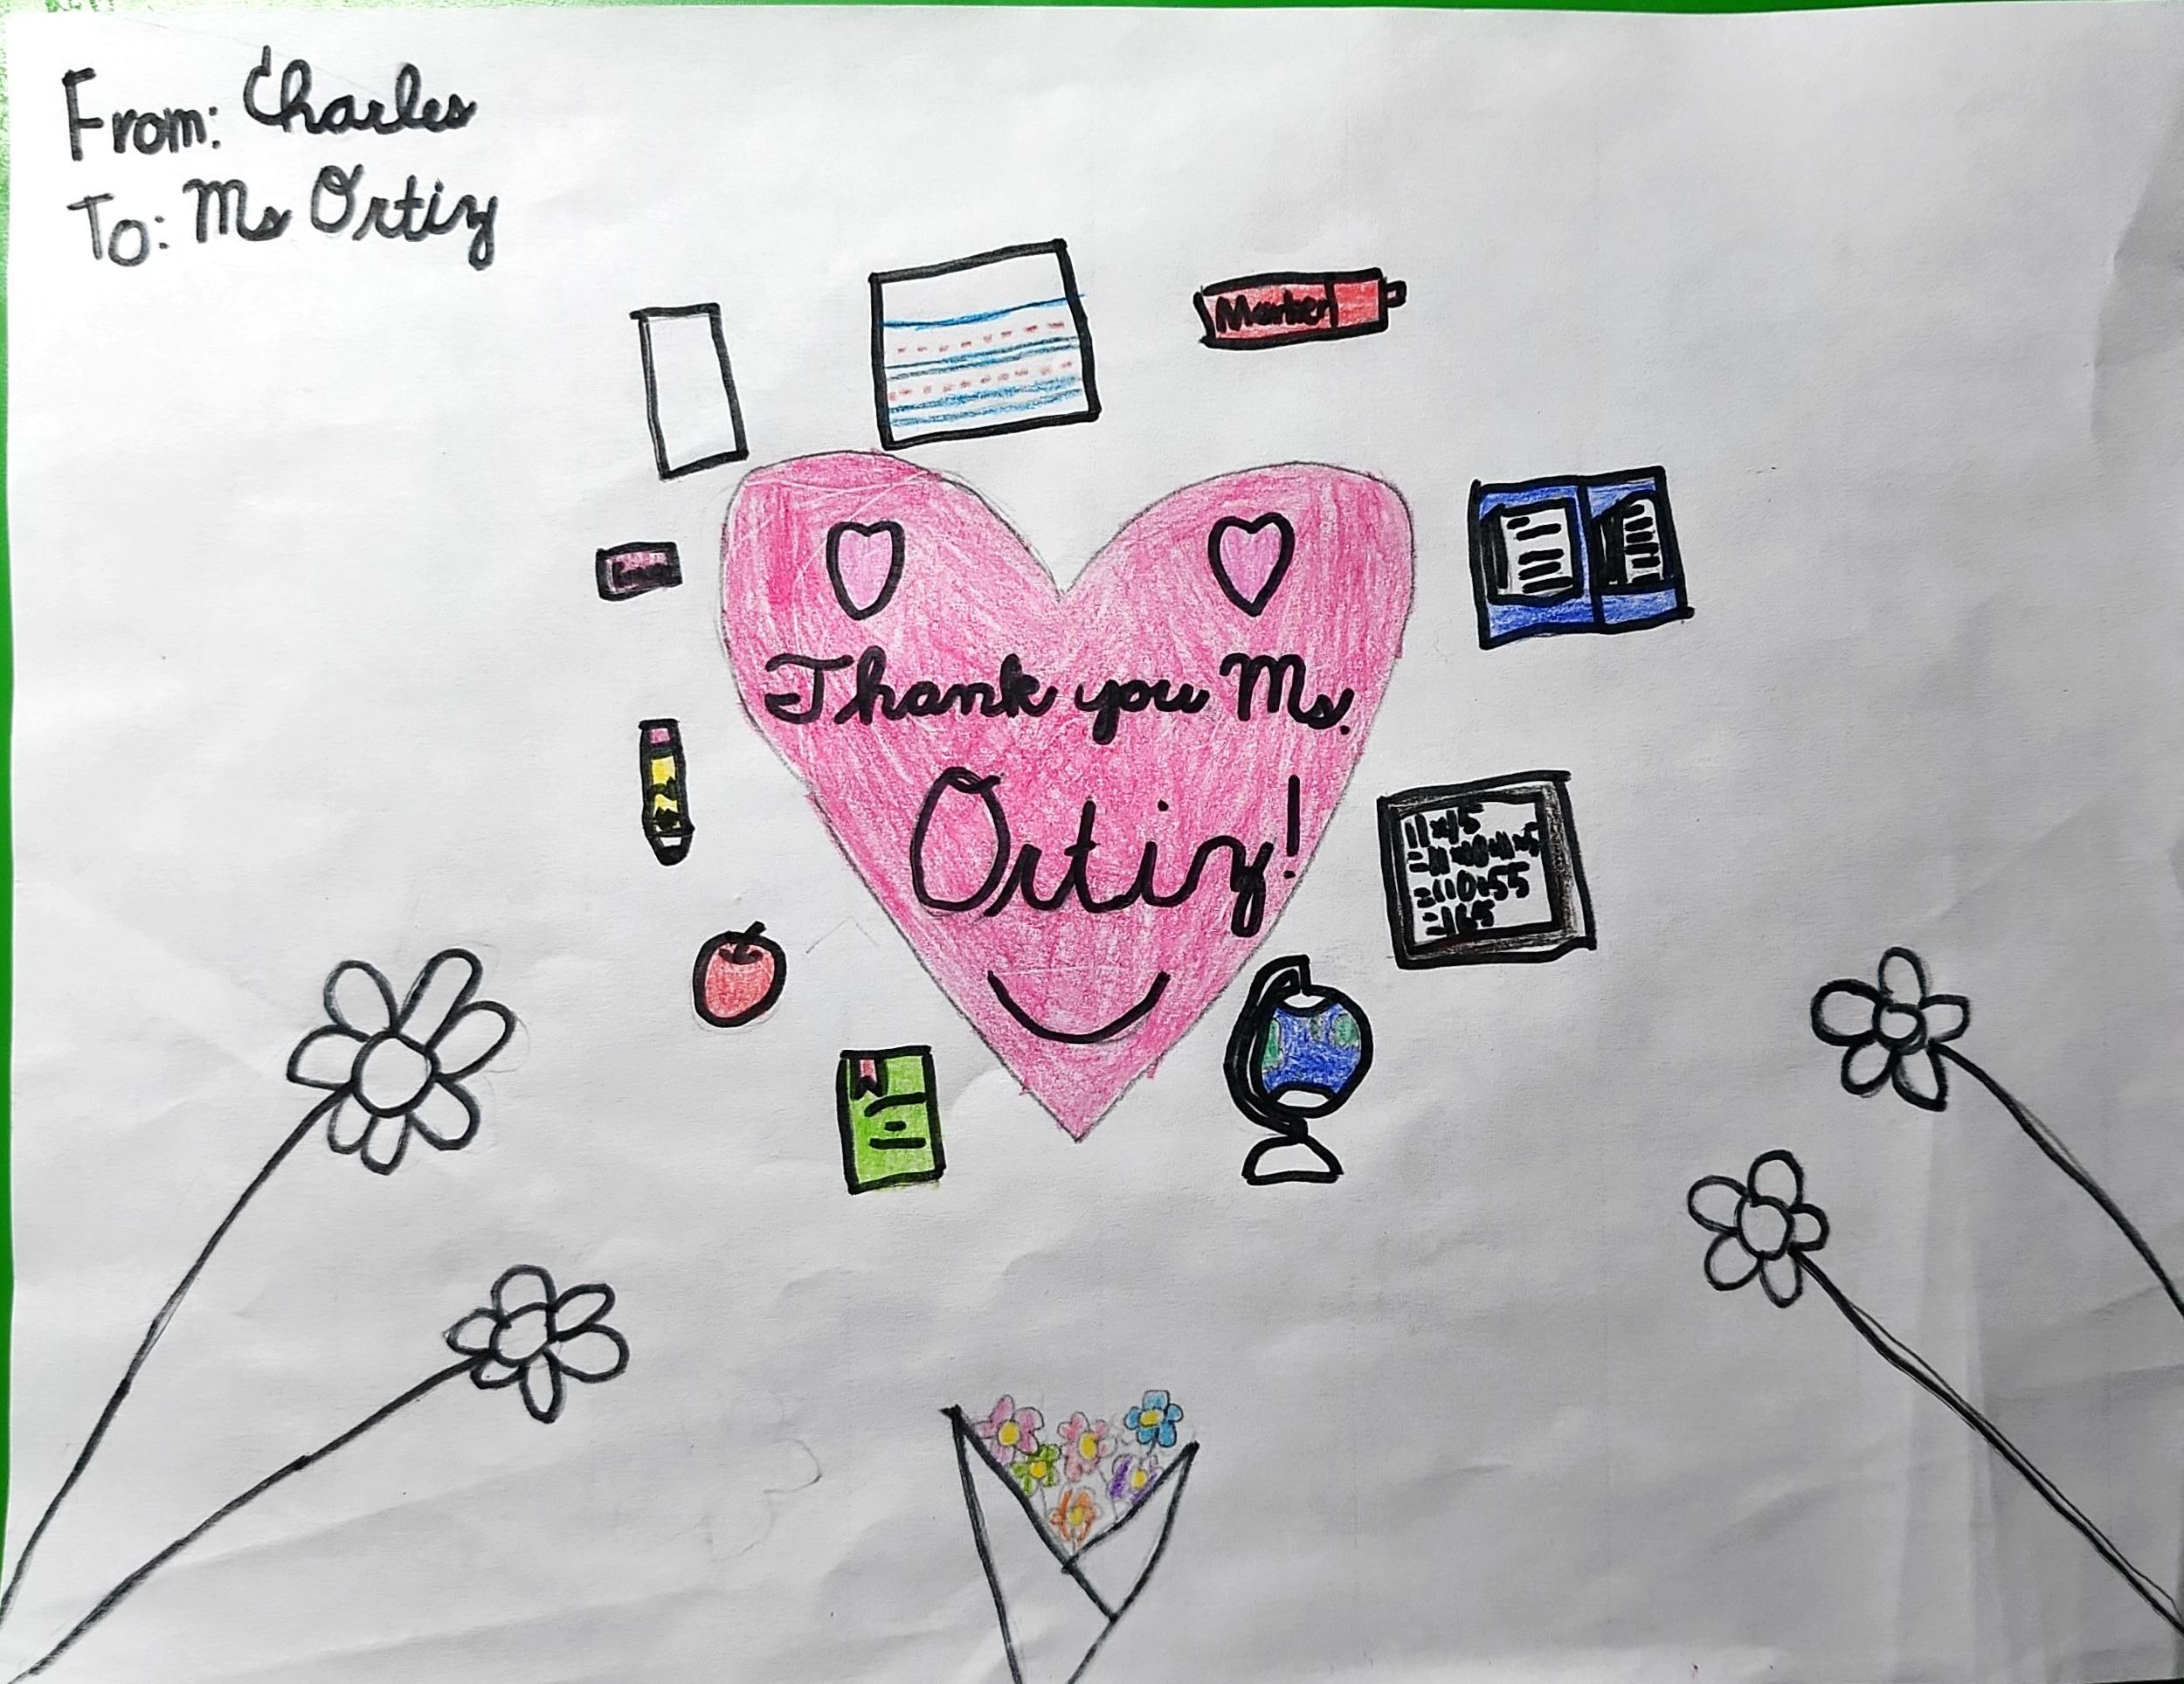 From: Charles
To: Ms Ortiz
Marker
Thank you Ms.
Ortiz!
11×15
=11×10+11×5
=110+55
=165